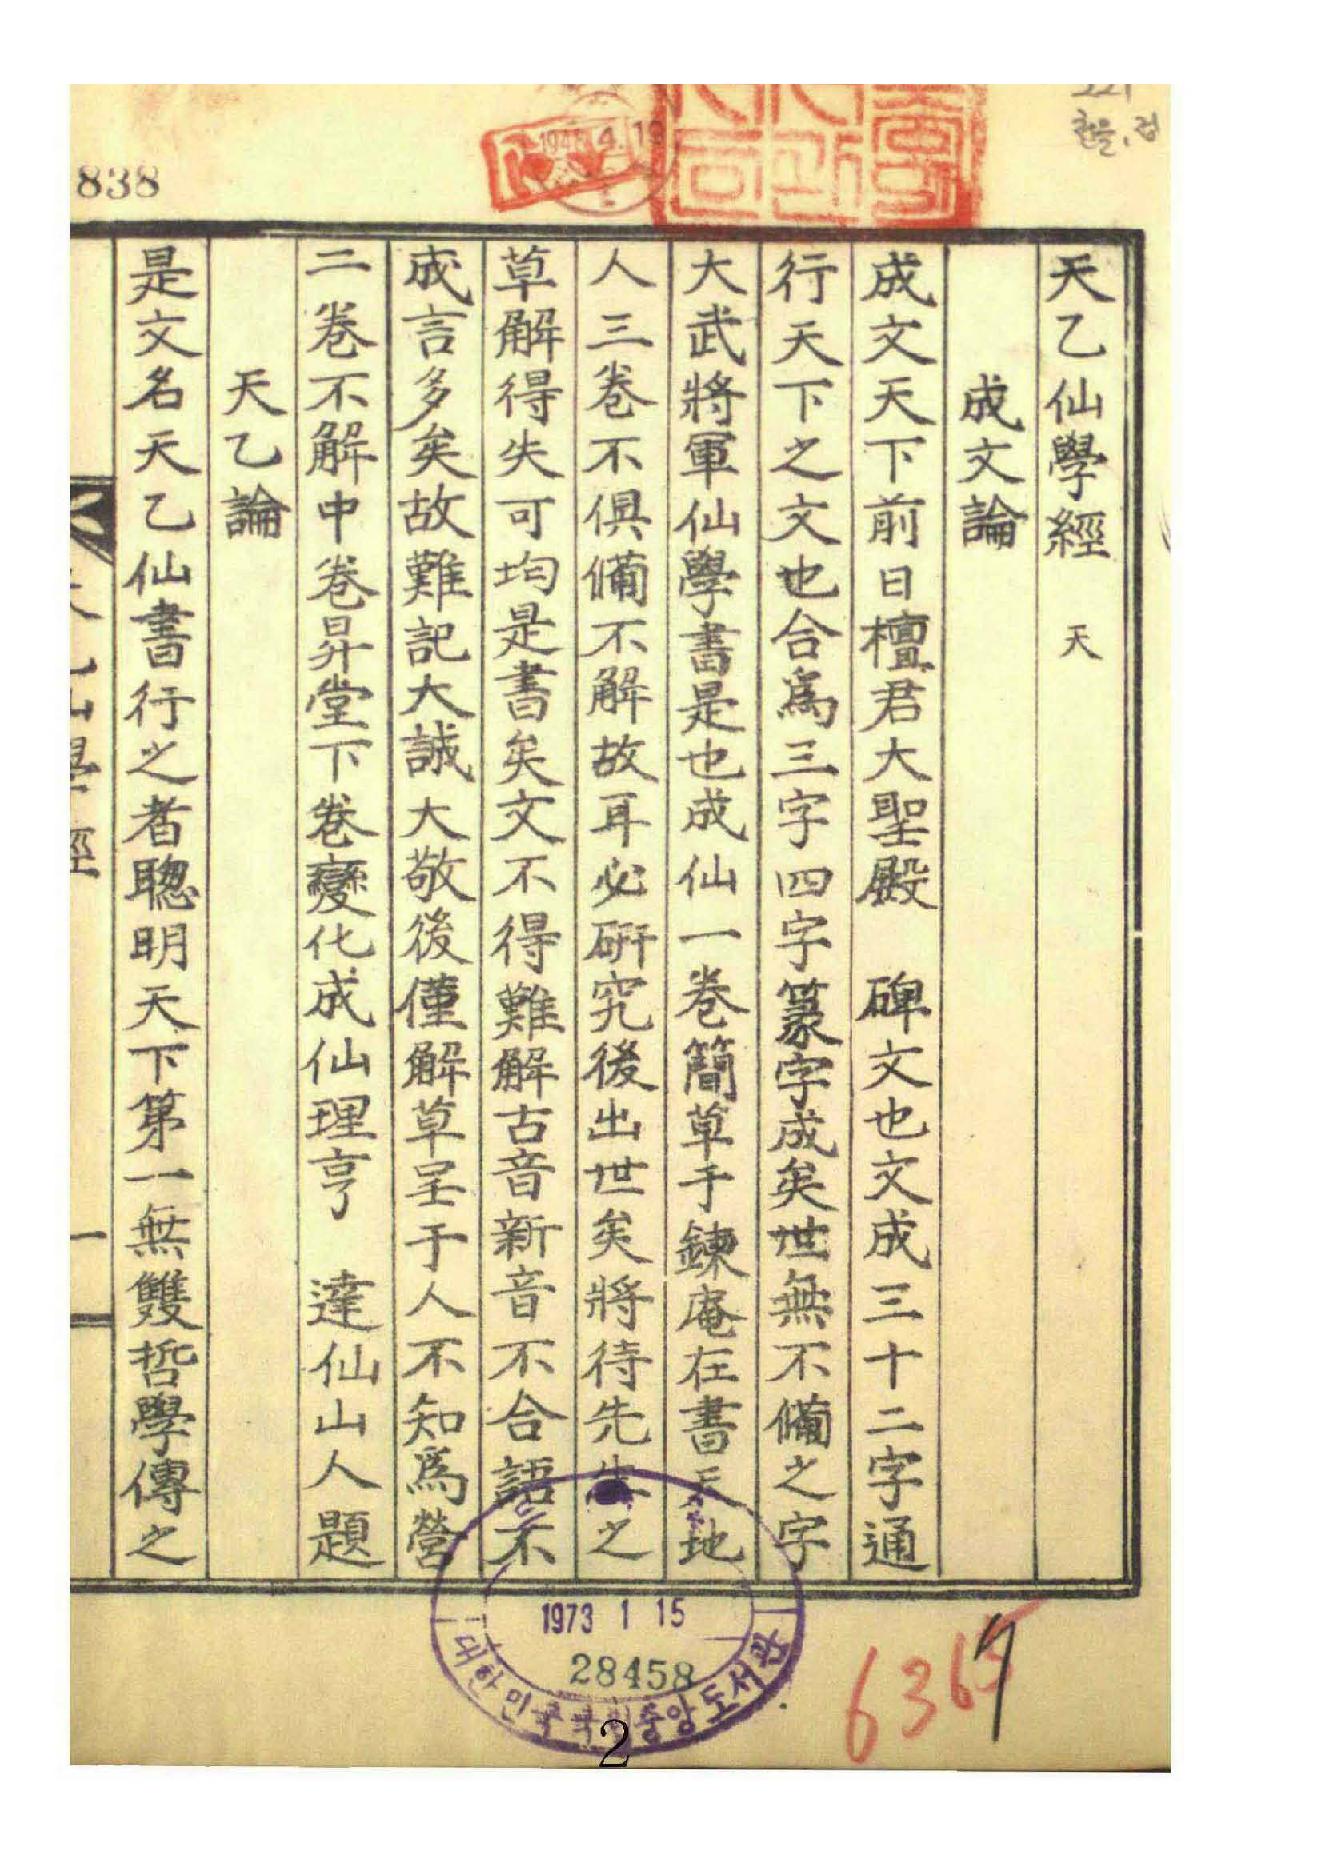 天乙仙學經 天
成文論
成文天下前日檀君大聖殿 碑文也文成三十二字通
行天下之文也合爲三字四字篆字成矣世無不備之字
大武將軍仙學書是也成仙一卷簡草于鍊庵在書天地
人三卷不俱備不解故耳必硏究後出世矣將待先生之
草解得失可均是書矣文不得難解古音新音不合語不
成言多矣故難記大誠大敬後僅解草呈于人不知爲營
二卷不解中卷昇堂下卷變化成仙理亨 達仙山人題
天乙論
是文名天乙仙書行之者聰明天下第一無雙哲學傳之
一
838
1973 1 15
28458
대한민국국립중앙도서관
636
2